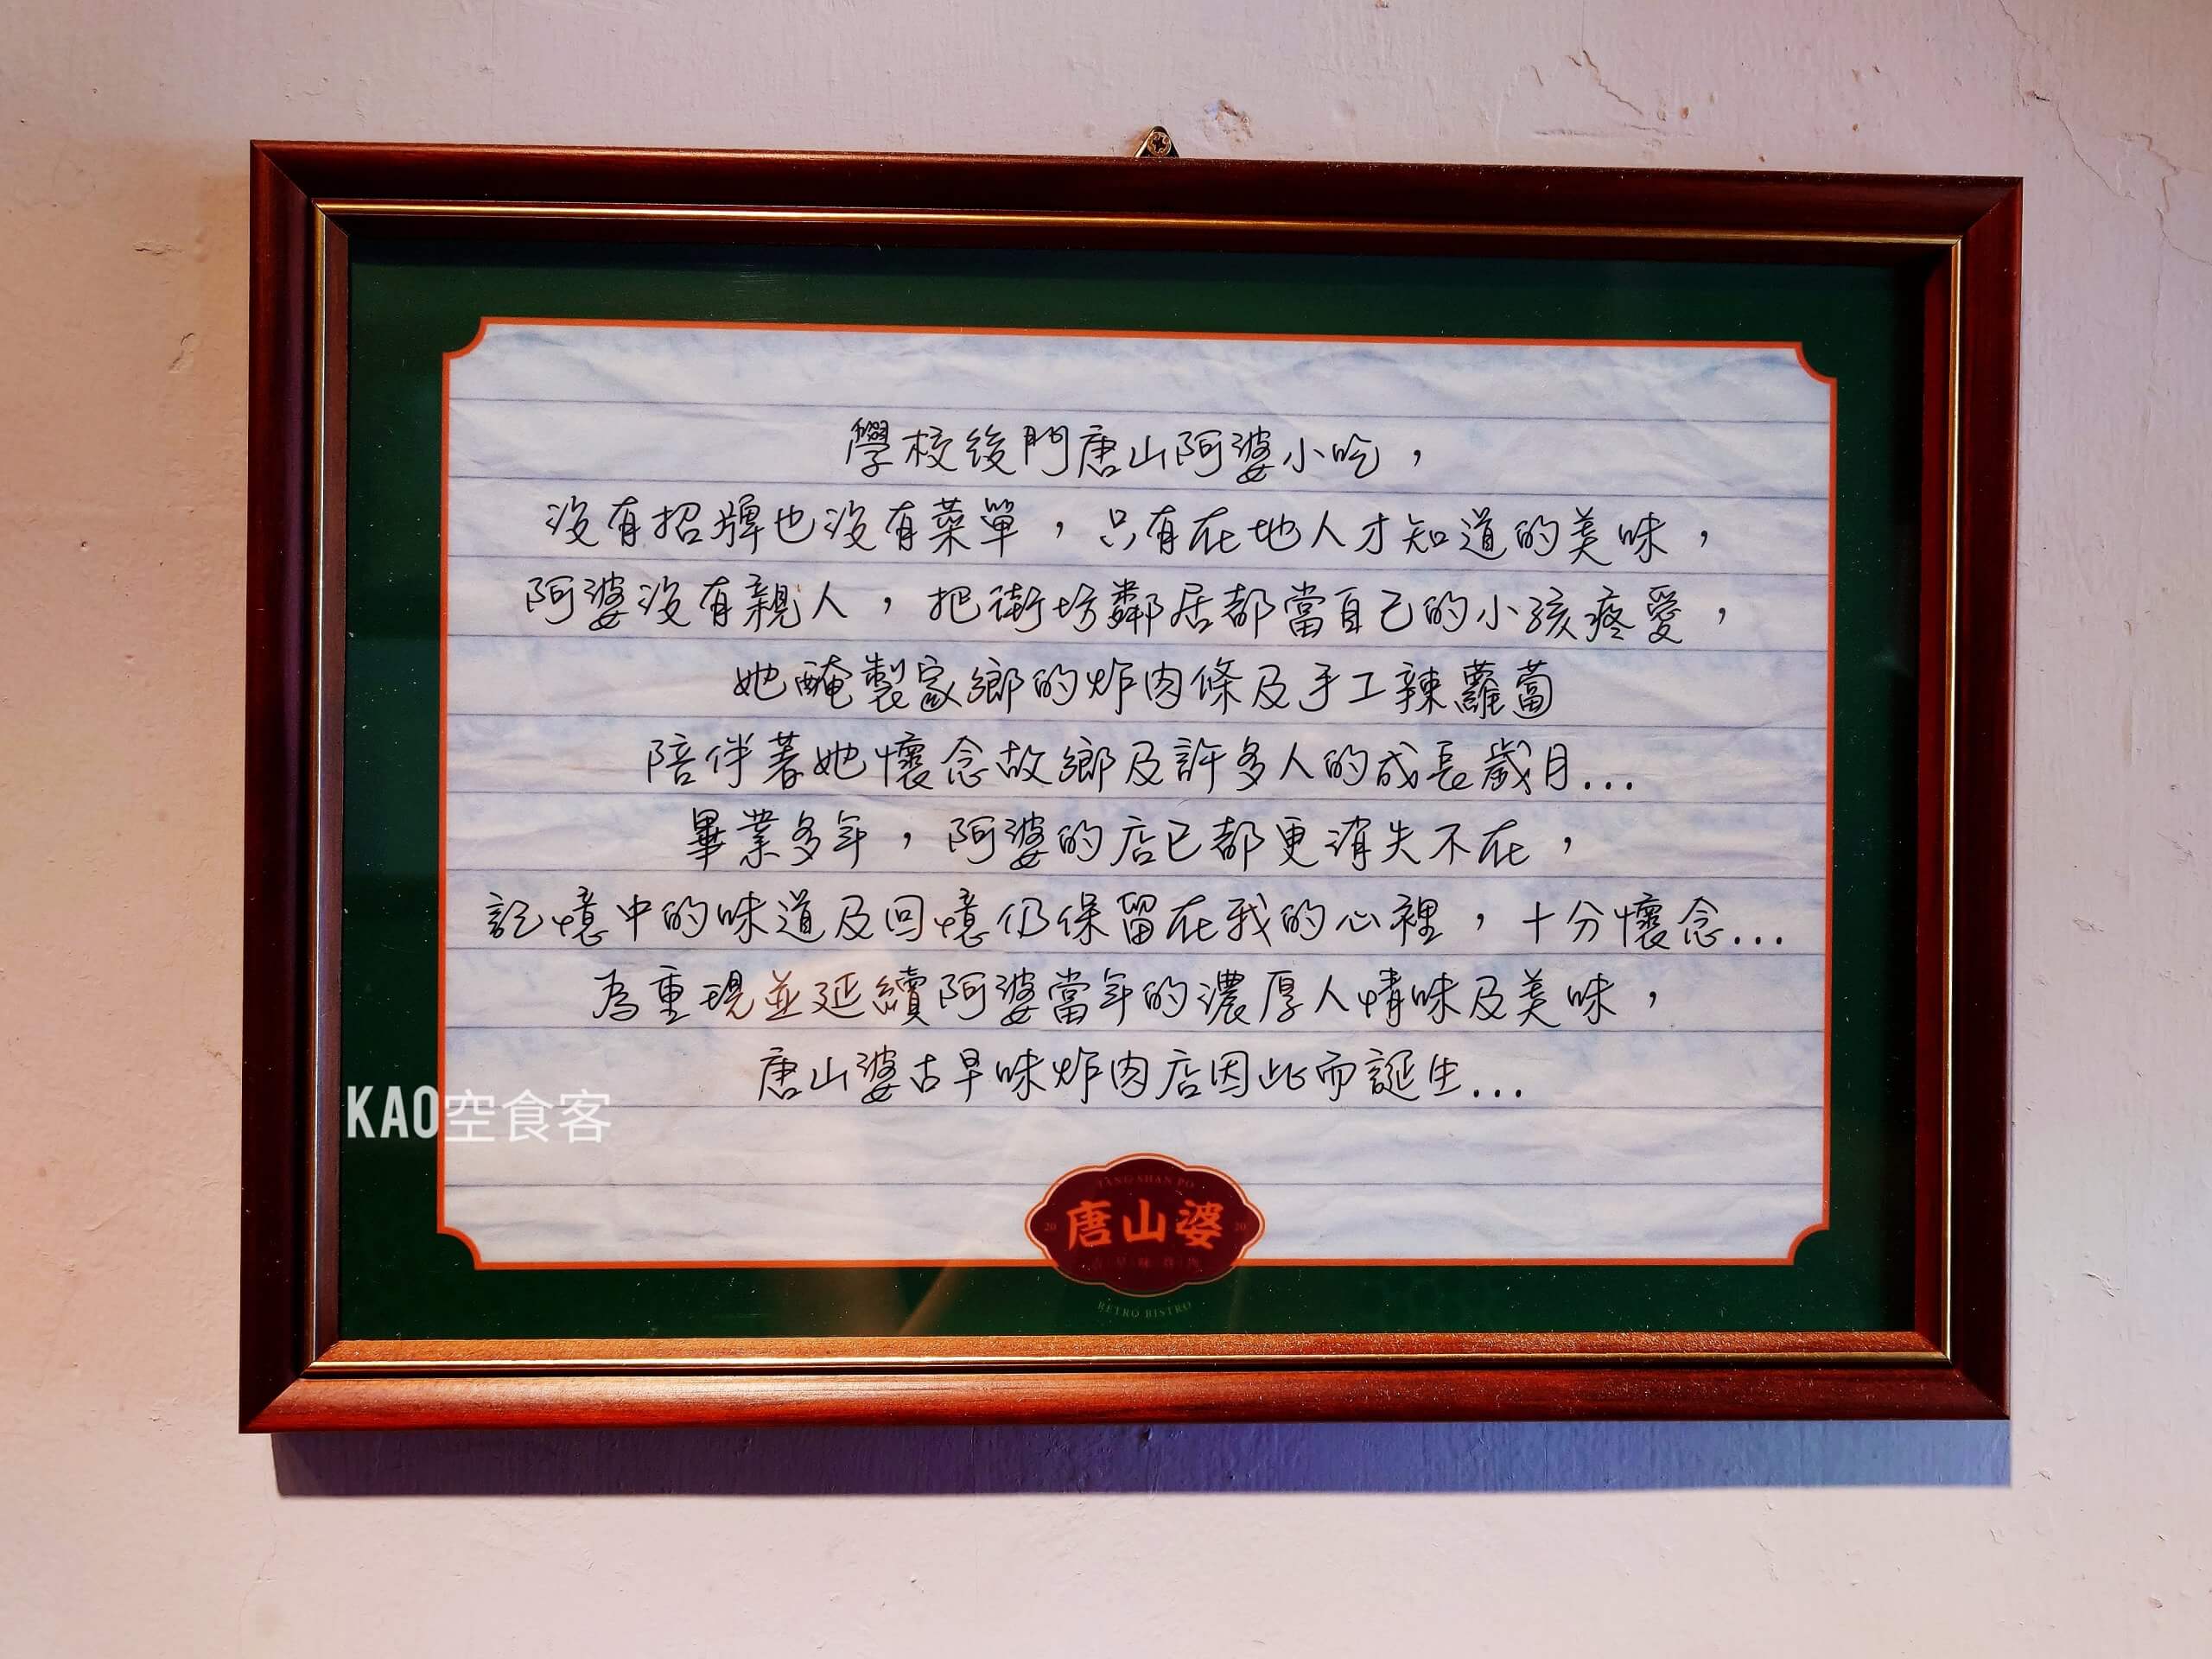 學校後門唐山阿婆小吃，
沒有招牌也沒有菜單，只有在地人才知道的美味，
阿婆沒有親人，把街坊鄰居都當自己的小孩疼愛，
她醃製家鄉的炸肉條及手工辣蘿蔔
陪伴著她懷念故鄉及許多人的成長歲月...
畢業多年，阿婆的店已都更消失不在，
記憶中的味道及回憶仍保留在我的心裡，十分懷念...
為重現並延續阿婆當年的濃厚人情味及美味，
唐山婆古早味炸肉店因此而誕生...
KAO空食客
TANG SHAN PO
20 唐山婆 20
RETRO BISTRO